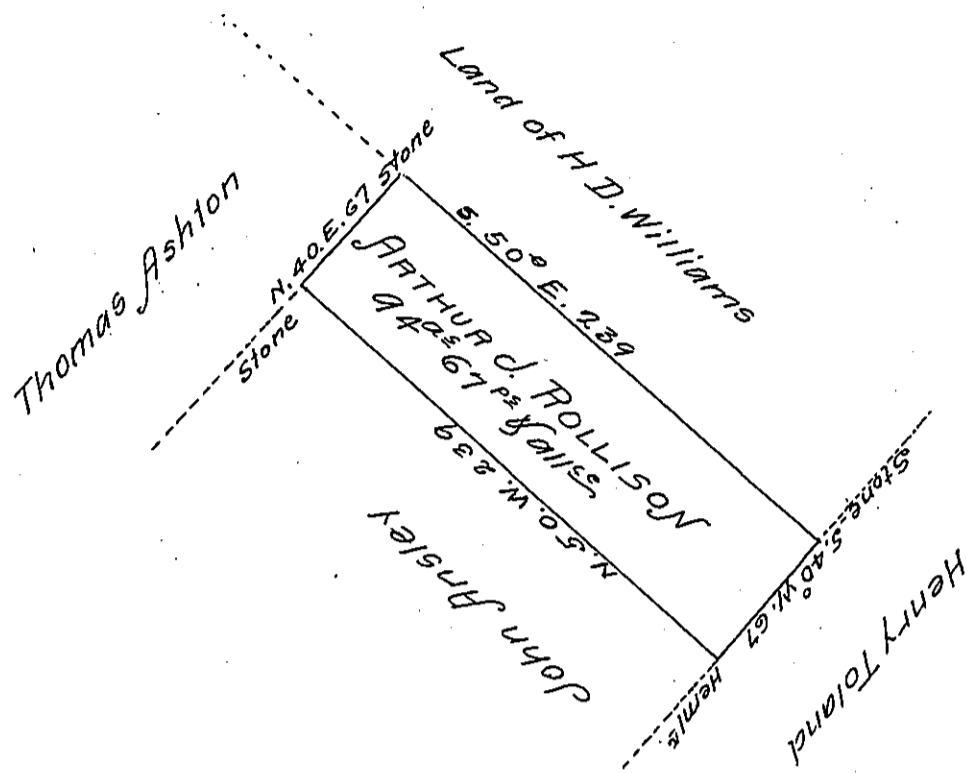 Land of H D. Williams
Thomas Ashton
N. 40. E. 67 Stone
Stone
S. 50° E. 239
ARTHUR J. ROLLISON
94 as 67 ps & allce
N. 50. W. 239
John Ansley
Stone S. 40° W. 67
Hemlk
Henry Toland